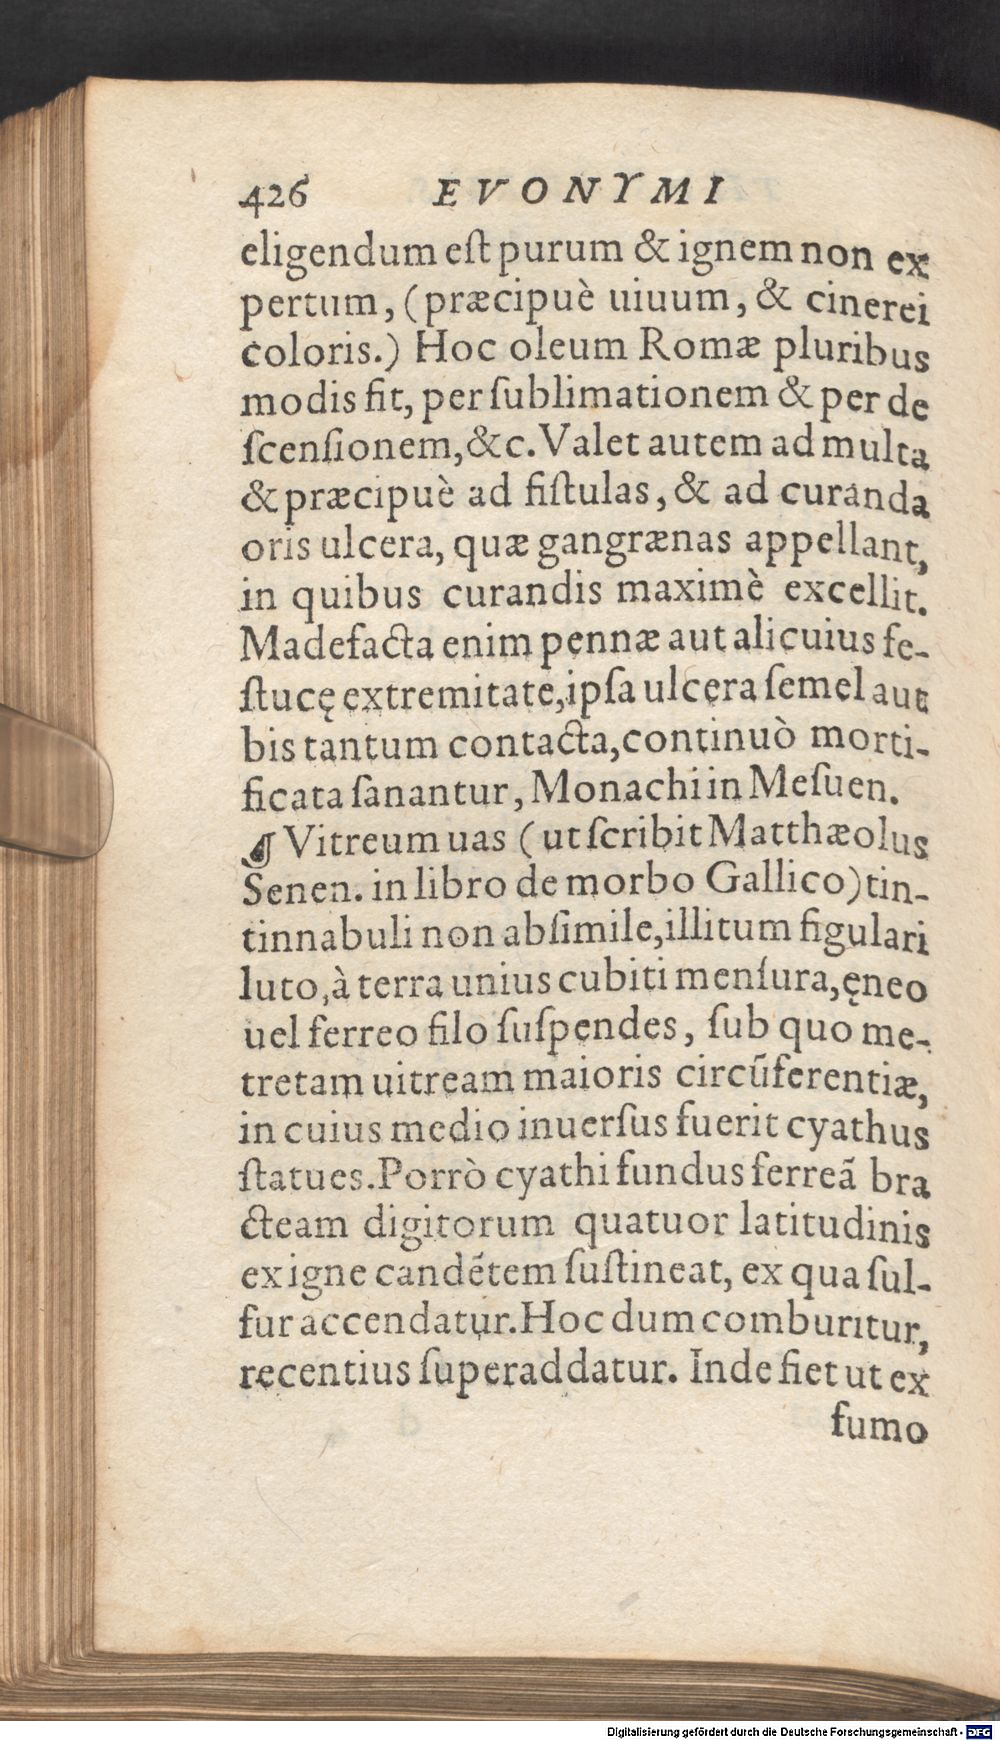 426 EVONYMI
eligendum eſt purum & ignem non ex
pertum, (præcipuè uiuum, & cinerei
coloris.) Hoc oleum Romæ pluribus
modis fit, per ſublimationem & per de
ſcenſionem, &c. Valet autem ad multa
& præcipuè ad fiſtulas, & ad curanda
oris ulcera, quæ gangrænas appellant,
in quibus curandis maximè excellit.
Madefacta enim pennæ aut alicuius fe-
ſtucę extremitate, ipſa ulcera ſemel aut
bis tantum contacta, continuò morti-
ficata ſanantur, Monachi in Meſuen.
¶ Vitreum uas (ut ſcribit Matthæolus
Senen. in libro de morbo Gallico) tin-
tinnabuli non abſimile, illitum figulari
luto, à terra unius cubiti menſura, ęneo
uel ferreo filo ſuſpendes, ſub quo me-
tretam uitream maioris circũferentiæ,
in cuius medio inuerſus fuerit cyathus
ſtatues. Porrò cyathi fundus ferreã bra
cteam digitorum quatuor latitudinis
ex igne candẽtem ſuſtineat, ex qua ſul-
fur accendatur. Hoc dum comburitur,
recentius ſuperaddatur. Inde fiet ut ex
fumo
Digitalisierung gefördert durch die Deutsche Forschungsgemeinschaft - DFG